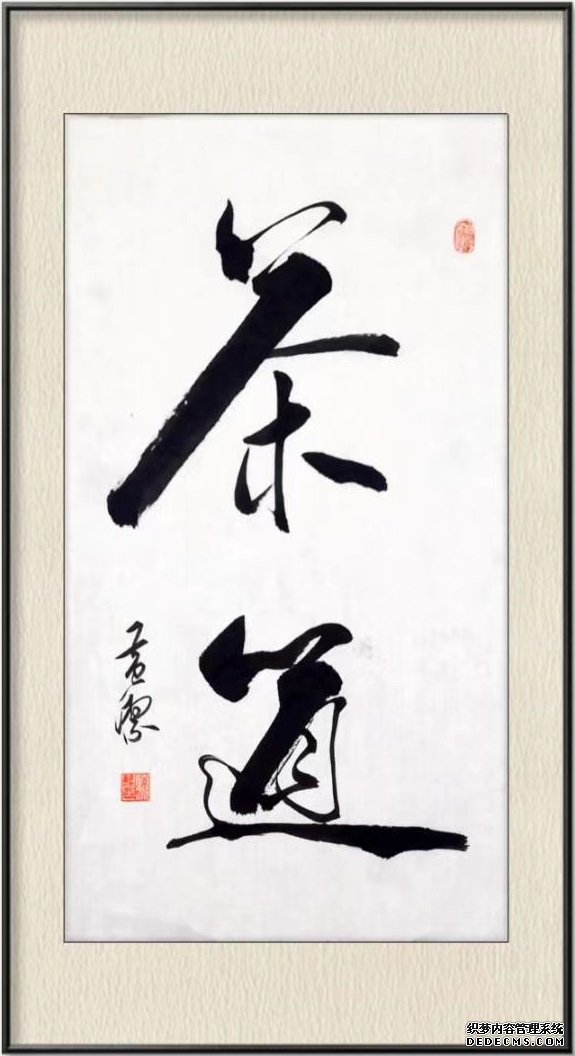 茶道
织梦内容管理系统
DEDECMS.COM